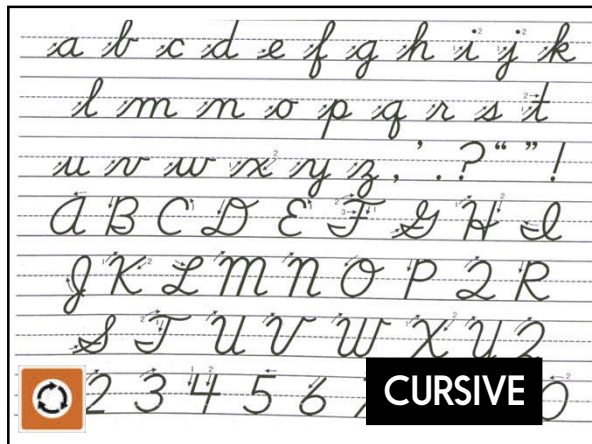 a b c d e f g h i j k
l m n o p q r s t
u v w x y z , ' . ? “ ” !
A B C D E F G H I
J K L M N O P Q R
S T U V W X Y Z
2 3 4 5 6 0
CURSIVE